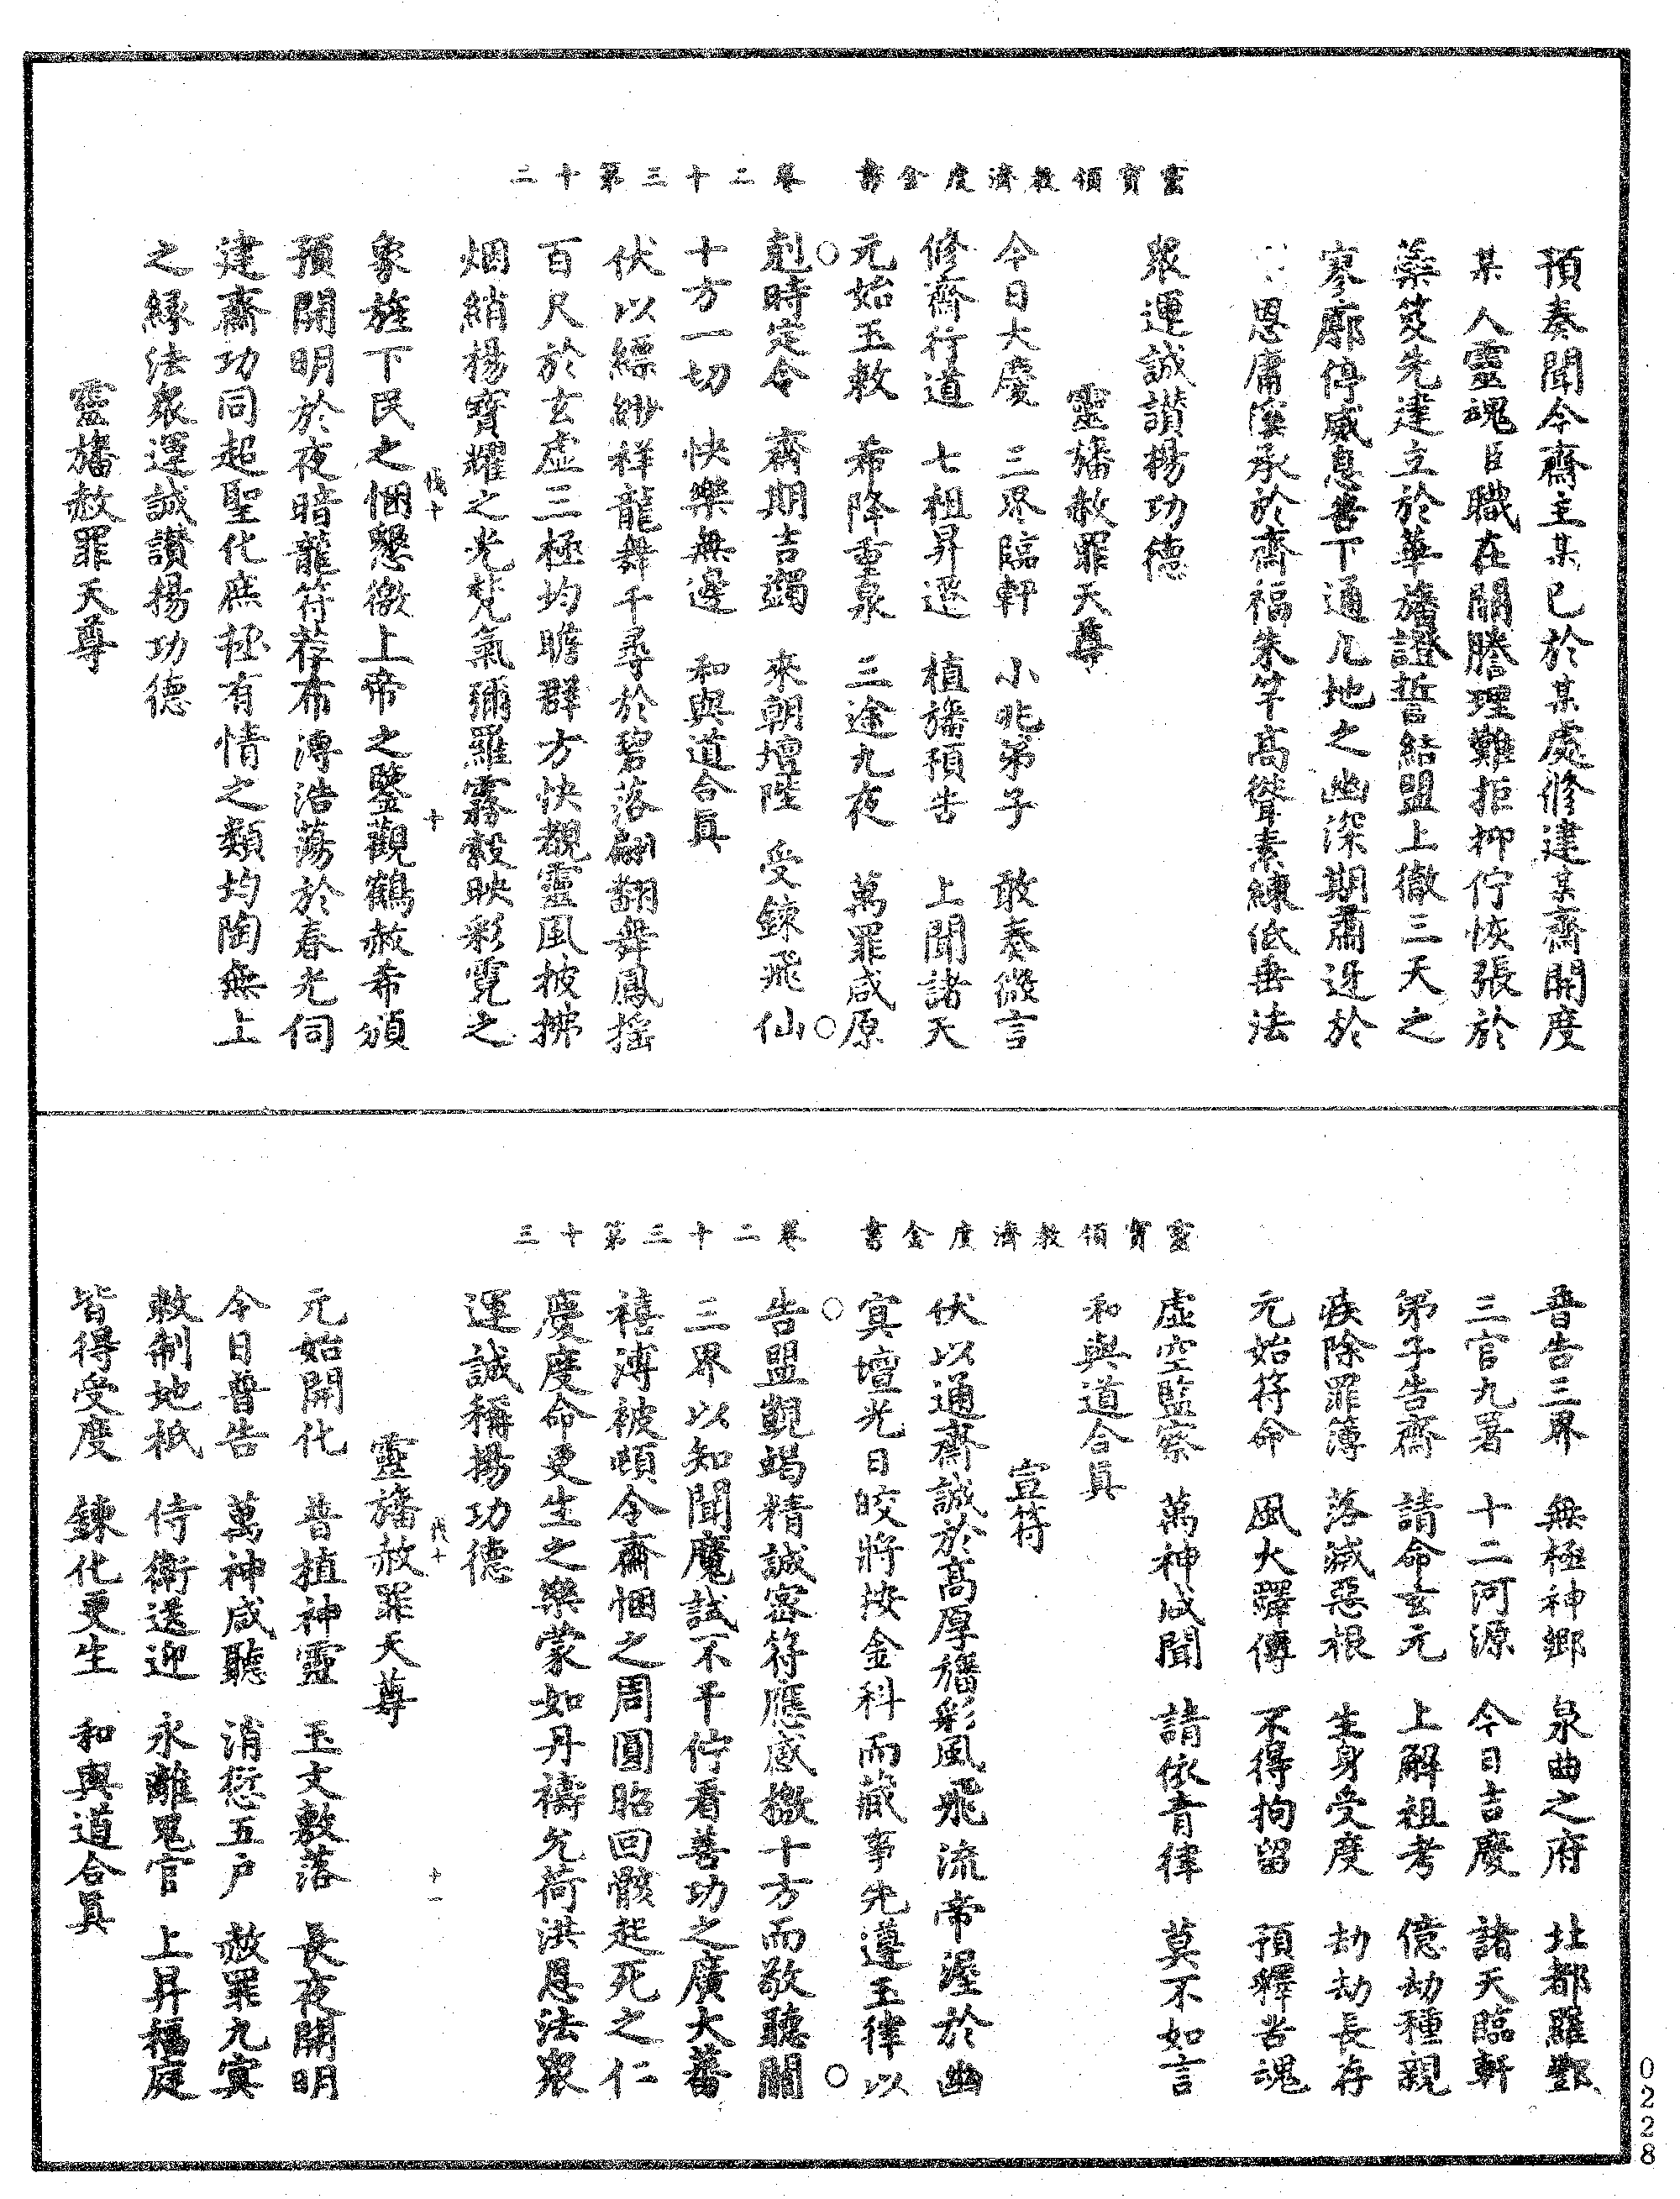 預奏聞今齋主某已於某處修建某齋開度
某人靈魂臣職在關牒理難拒抑佇恢張於
蘂笈先建立於華旛證誓結盟上徹三天之
寥廓停威息苦下通九地之幽深期肅迓於
恩庸溪承於齋福朱竿高聳素練低垂法
衆運誠讃揚功德
靈旛赦罪天尊
今日大慶　三界臨軒　小兆弟子　敢奏微言
修齋行道　七祖昇遷　植旛預告　上聞諸天
元始玉敕　希降重泉　三途九夜　萬罪咸原
剋時定令　齋期吉蠲　來朝壇陛　受錬飛仙
十方一切　快樂無邊　和與道合眞
靈寶領教濟度金書　卷二十三第十二
伏以縹緲祥龍舞千尋於碧落翩翻舞鳳搖
百尺於玄虛三極均瞻群方快覩靈風披拂
烟綃揚寶耀之光梵氣彌羅霧縠映彩霓之
象旌下民之悃懇徼上帝之鑒觀鶴赦希頒
預開明於夜暗龍符荐布溥浩蕩於春光伺
建齋功同超聖化庶拯有情之類均陶無上
之緣法衆運誠讃揚功德
靈旛赦罪天尊
十
普告三界　無極神鄉　泉曲之府　北都羅酆
三官九署　十二河源　今日吉慶　諸天臨軒
弟子告齋　請命玄元　上解祖考　億劫種親
疾除罪簿　落滅惡根　生身受度　劫劫長存
元始符命　風火驛傳　不得拘留　預釋苦魂
虛空監察　萬神咸聞　請依青律　莫不如言
和與道合眞
宣符
伏以通齋誠於高厚旛彩風飛流帝渥於幽
冥壇光日皎將按金科而蕆事先遵玉律以
告盟觀竭精誠密符應感檄十方而敬聽關
三界以知聞魔試不干佇看善功之廣大蕃
禧溥被頓令齋悃之周圓昭回骸起死之仁
慶度命更生之樂蒙如丹禱允荷洪恩法衆
運誠稱揚功德
靈寶領教濟度金書　卷二十三第十三
靈旛赦罪天尊
十一
元始開化　普植神靈　玉文敷落　長夜開明
今日普告　萬神咸聽　消愆五戶　赦罪九冥
敕制地祇　侍衛送迎　永離鬼官　上昇福庭
皆得受度　錬化更生　和與道合眞
0228